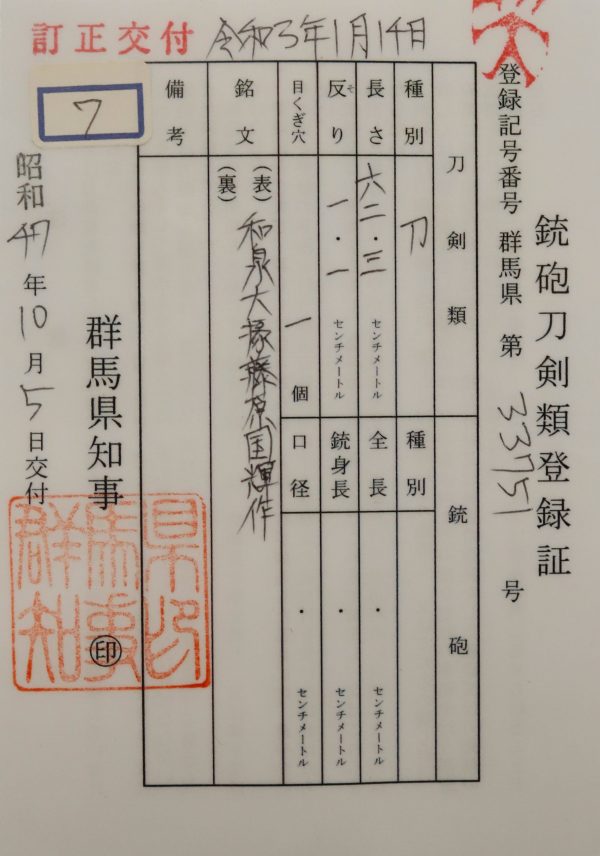 訂正交付 令和3年1月14日
銃砲刀剣類登録証
登録記号番号 群馬県 第 33751 号
刀剣類
種別 刀
長さ 六二・三 センチメートル
反り 一・一 センチメートル
そ
目くぎ穴 一 個
銘文 (表) 和泉大掾藤原国輝作
(裏)
備考
銃砲
種別
全長 ・ センチメートル
銃身長 ・ センチメートル
口径 ・ センチメートル
群馬県知事 印
昭和47年10月5日交付
7
群馬県知事印